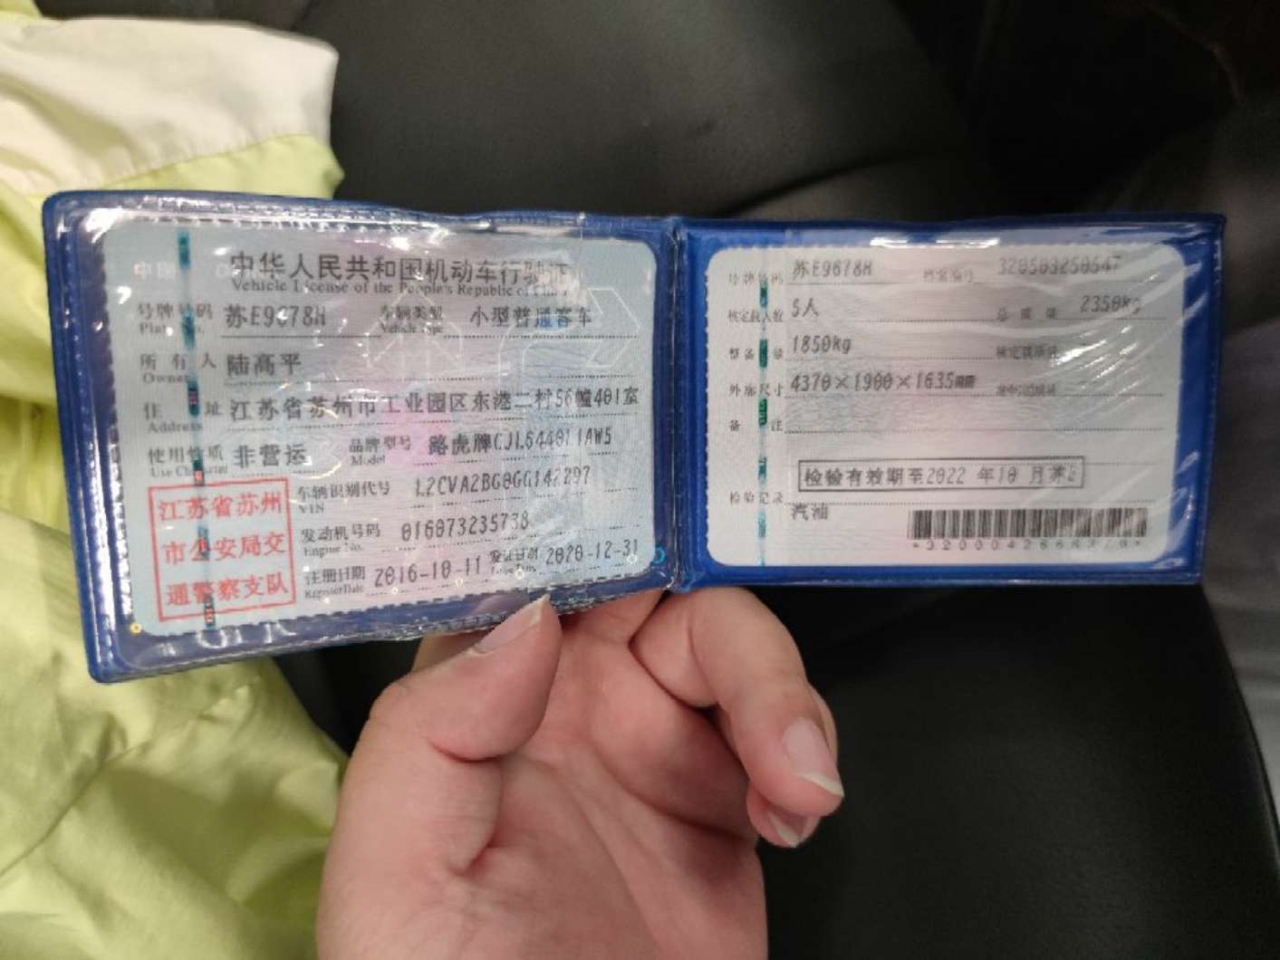 中华人民共和国机动车行驶证
Vehicle License of the People's Republic of China
号牌号码 苏E9678H 车辆类型 小型普通客车
Plate No. Vehicle Type
所有人 陆高平
Owner
住址 江苏省苏州市工业园区东港二村56幢401室
Address
使用性质 非营运 品牌型号 路虎牌
Use Character Model
江苏省苏州
市公安局交
通警察支队
车辆识别代号
VIN
发动机号码
Engine No.
注册日期 2016-10-11 发证日期 2020-12-31
Register Date
号牌号码 苏E9678H 档案编号
核定载人数 5人 总质量 2350kg
整备质量 1850kg 核定载质量
外廓尺寸 4370×1900×1635mm
备注
检验有效期至2022年10月
检验记录
汽油